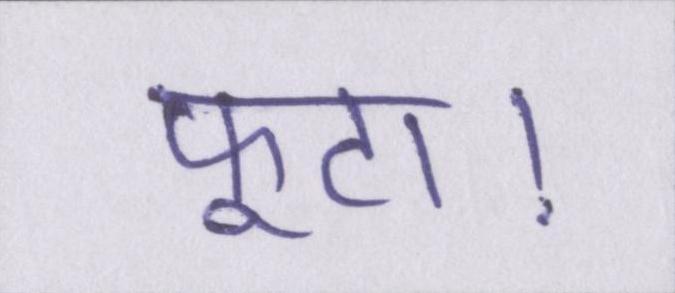 फूटा!